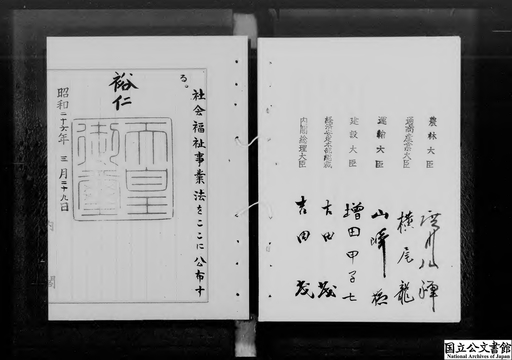 社会福祉事業法をここに公布す
る。
裕仁
天皇
御璽
昭和二十六年三月二十九日
内閣
農林大臣 廣川弘禪
通商産業大臣 横尾龍
運輸大臣 山崎猛
建設大臣 増田甲子七
吉田茂
内閣総理大臣 吉田茂
国立公文書館
National Archives of Japan